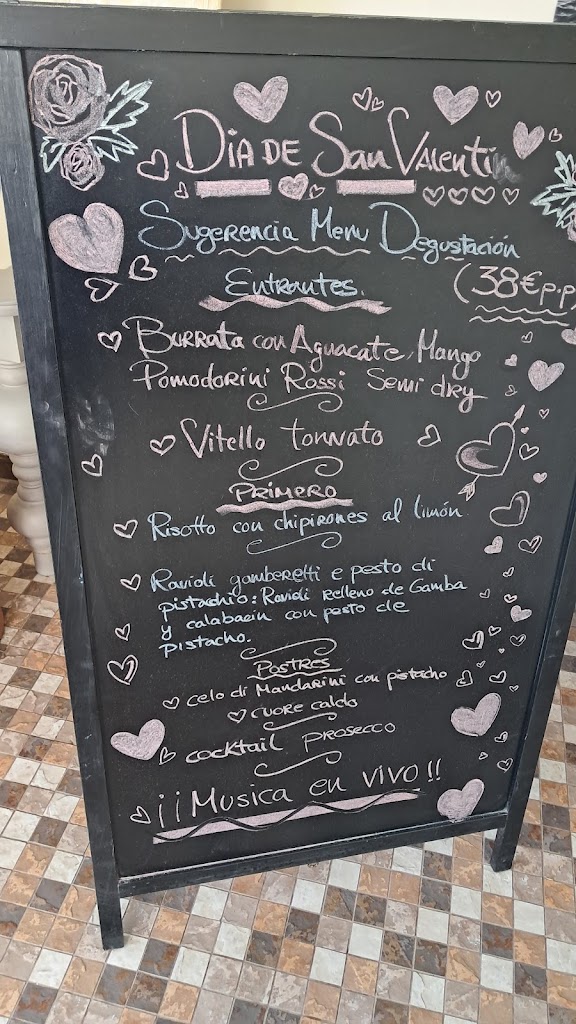 Dia de San Valentin
Sugerencia Menu Degustación
Entrantes.
(38€ p.p
Burrata con Aguacate, Mango
Pomodorini Rossi Semi dry
Vitello tonnato
Primero
Risotto con chipirones al limón
Ravioli gamberetti e pesto di
pistachio: Ravioli relleno de Gamba
y calabacin con pesto de
pistacho.
Postres
celo di Mandarini con pistacho
cuore caldo
cocktail prosecco
¡¡Musica en vivo!!